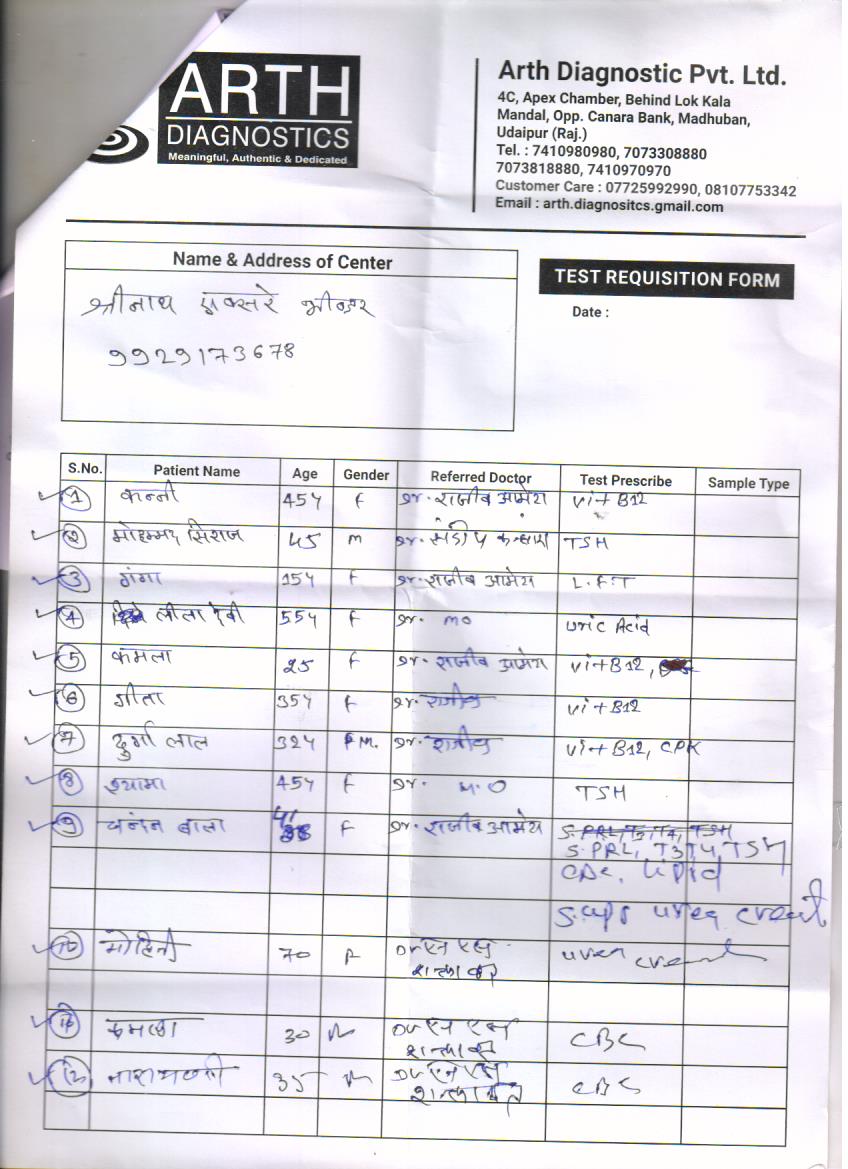 ARTH
DIAGNOSTICS
Meaningful, Authentic & Dedicated
Arth Diagnostic Pvt. Ltd.
4C, Apex Chamber, Behind Lok Kala
Mandal, Opp. Canara Bank, Madhuban,
Udaipur (Raj.)
Tel. : 7410980980, 7073308880
7073818880, 7410970970
Customer Care : 07725992990, 08107753342
Email : arth.diagnositcs.gmail.com
Name & Address of Center
श्रीनाथ एक्सरे भीन्डर
9929173678
TEST REQUISITION FORM
Date :
S.No. Patient Name Age Gender Referred Doctor Test Prescribe Sample Type
1 कन्नी 45y F Dr. राजीव आमेय Vit B12
2 मोहम्मद सिराज 45 M Dr. TSH
3 गंगा 15y F Dr. राजीव आमेय L.F.T
4 लीला देवी 55y F Dr. MO Uric Acid
5 कमला 25 F Dr. राजीव आमेय Vit B12,
6 गीता 35y F Dr. राजीव Vit B12
7 दुर्गा लाल 32y M. Dr. राजीव Vit B12, CPK
8 श्यामा 45y F Dr. M.O TSH
9 बाला 41 F Dr. राजीव आमेय S.PRL, T3, T4, TSH
S.PRL, T3 T4, TSH
CBC, Lipid
urea creat
10 मोहिनी 70 F Dr एन एस urea creat
30 M Dr एन एस CBC
12 35 M Dr एन एस CBC